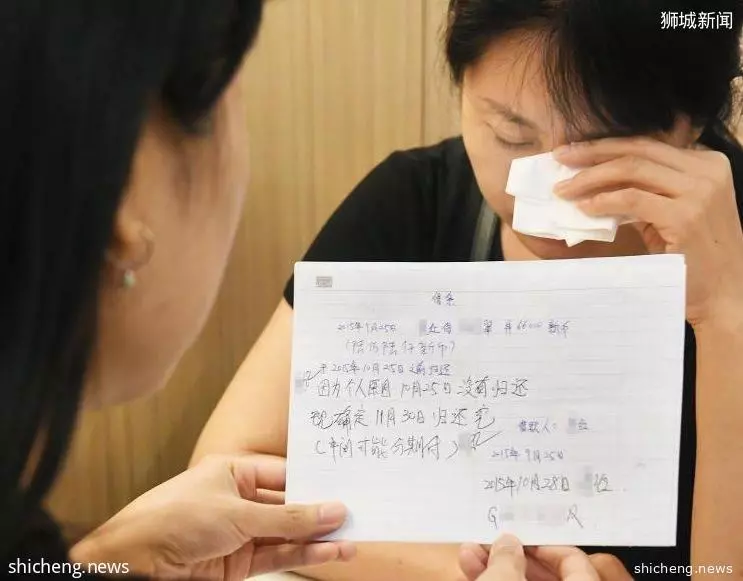 狮城新闻
借条
2015年9月25日 借 66000 新币
(陆万陆仟新币)
于2015年10月25日之前归还
因为个人原因10月25日没有归还
现确定11月30日归还完
(中间可能分期付)
借款人:
2015年9月25日
2015年10月28日
G
shicheng.news
shicheng.news